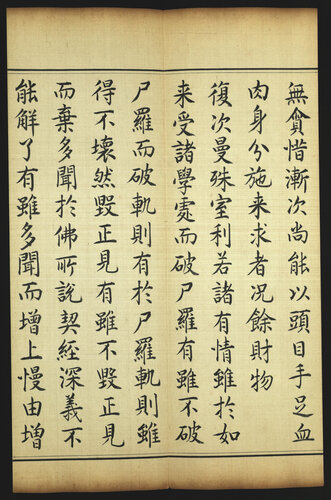 無貪惜漸次尚能以頭目手足血
肉身分施来求者况餘財物
復次曼殊室利若諸有情雖於如
来受諸學處而破尸羅有雖不破
尸羅而破軌則有於尸羅軌則雖
得不壞然毀正見有雖不毀正見
而棄多聞於佛所說契經深義不
能解了有雖多聞而增上慢由增